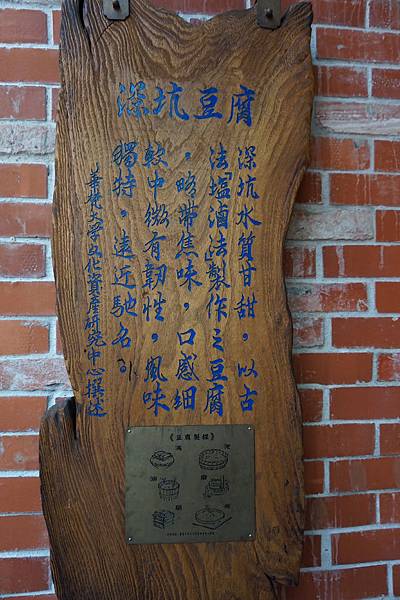 深坑豆腐
深坑水質甘甜。以古
法「塩滷法」製作之豆腐
，略帶焦味，口感細
軟中微有韌性，風味
獨特。遠近馳名。
華梵大學文化資產研究中心撰述
《豆腐製程》